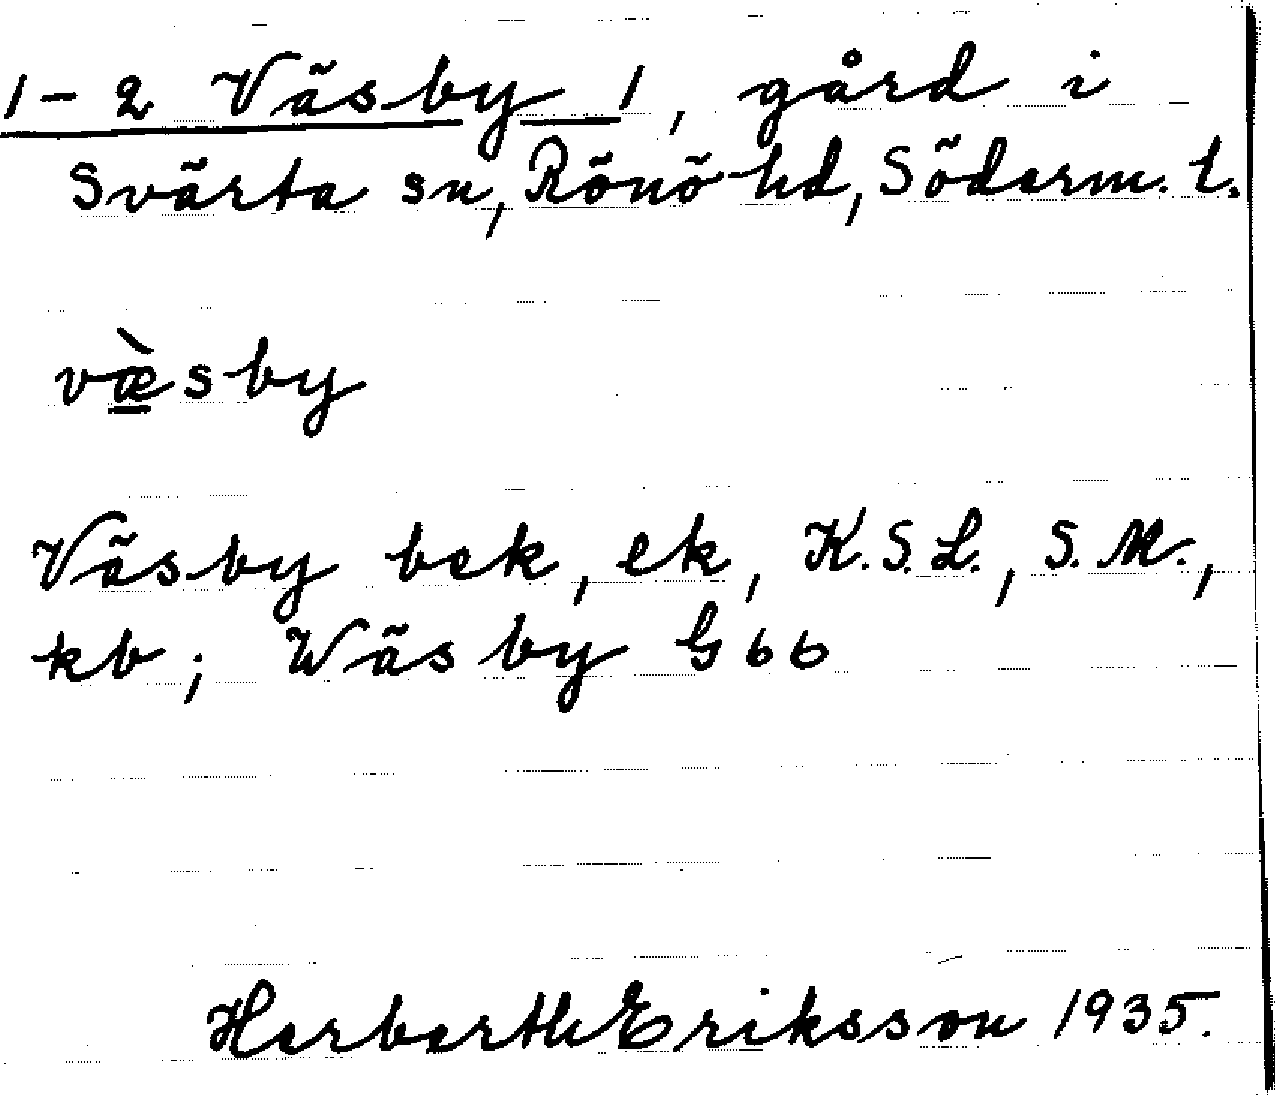 1-2 Väsby 1, gård i
Svärta sn, Rönö hd, Söderm. l.
væ̀sby
Väsby bek, ek, K.S.L., S.M.,
kb; Wäsby G 66
Herberth Eriksson 1935.